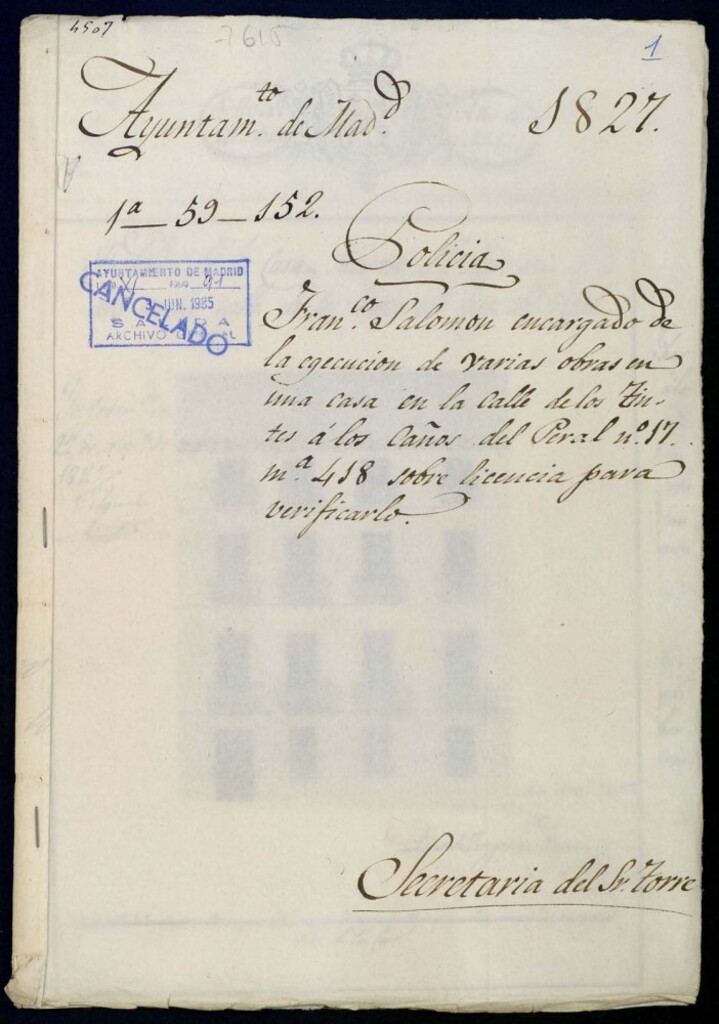 4507
7615
1
Ayuntam.to de Mad.d 1827.
1a_59_152.
Policia
AYUNTAMIENTO DE MADRID
JUN. 1985
CANCELADO
ARCHIVO
Fran.co Salomon encargado de
la egecucion de varias obras en
una casa en la calle de los Tin-
tes á los Caños del Peral n.o 17.
m.a 418 sobre licencia para
verificarlo.
Secretaria del Sr. Torre